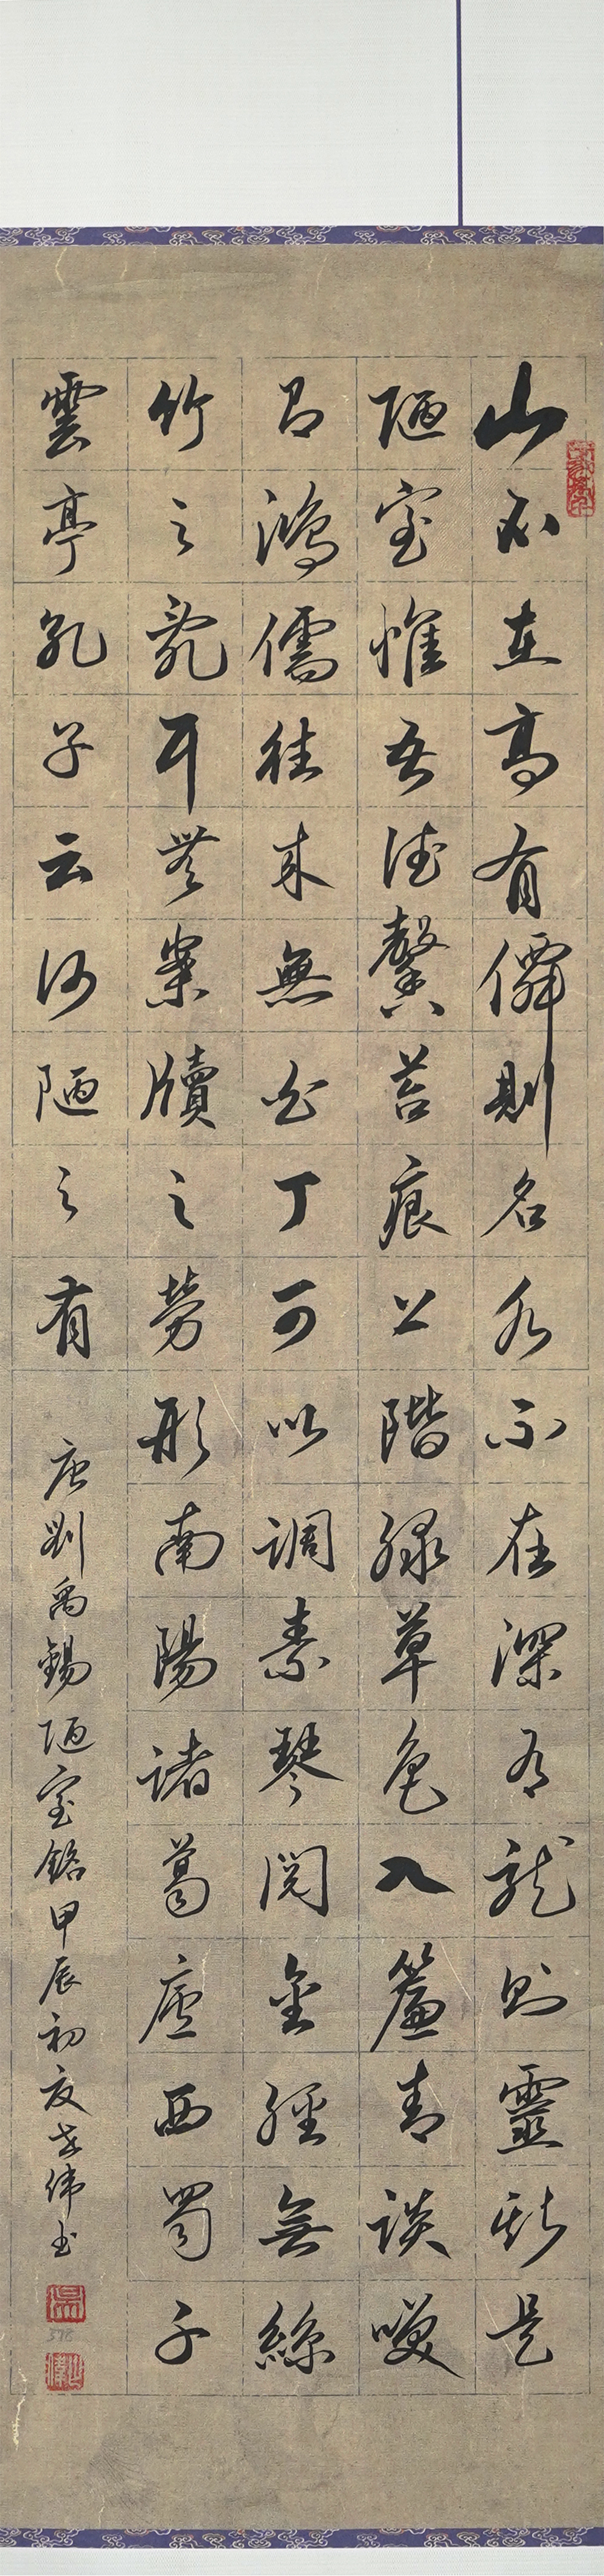 山不在高有僊則名水不在深有龍則靈斯是
陋室惟吾德馨苔痕上階緑草色入簾青談咲
有鴻儒往来無白丁可以調素琴閱金經無絲
竹之亂耳無案牘之勞形南陽諸葛廬西蜀子
雲亭孔子云何陋之有
唐劉禹錫陋室銘甲辰初夏世伟书